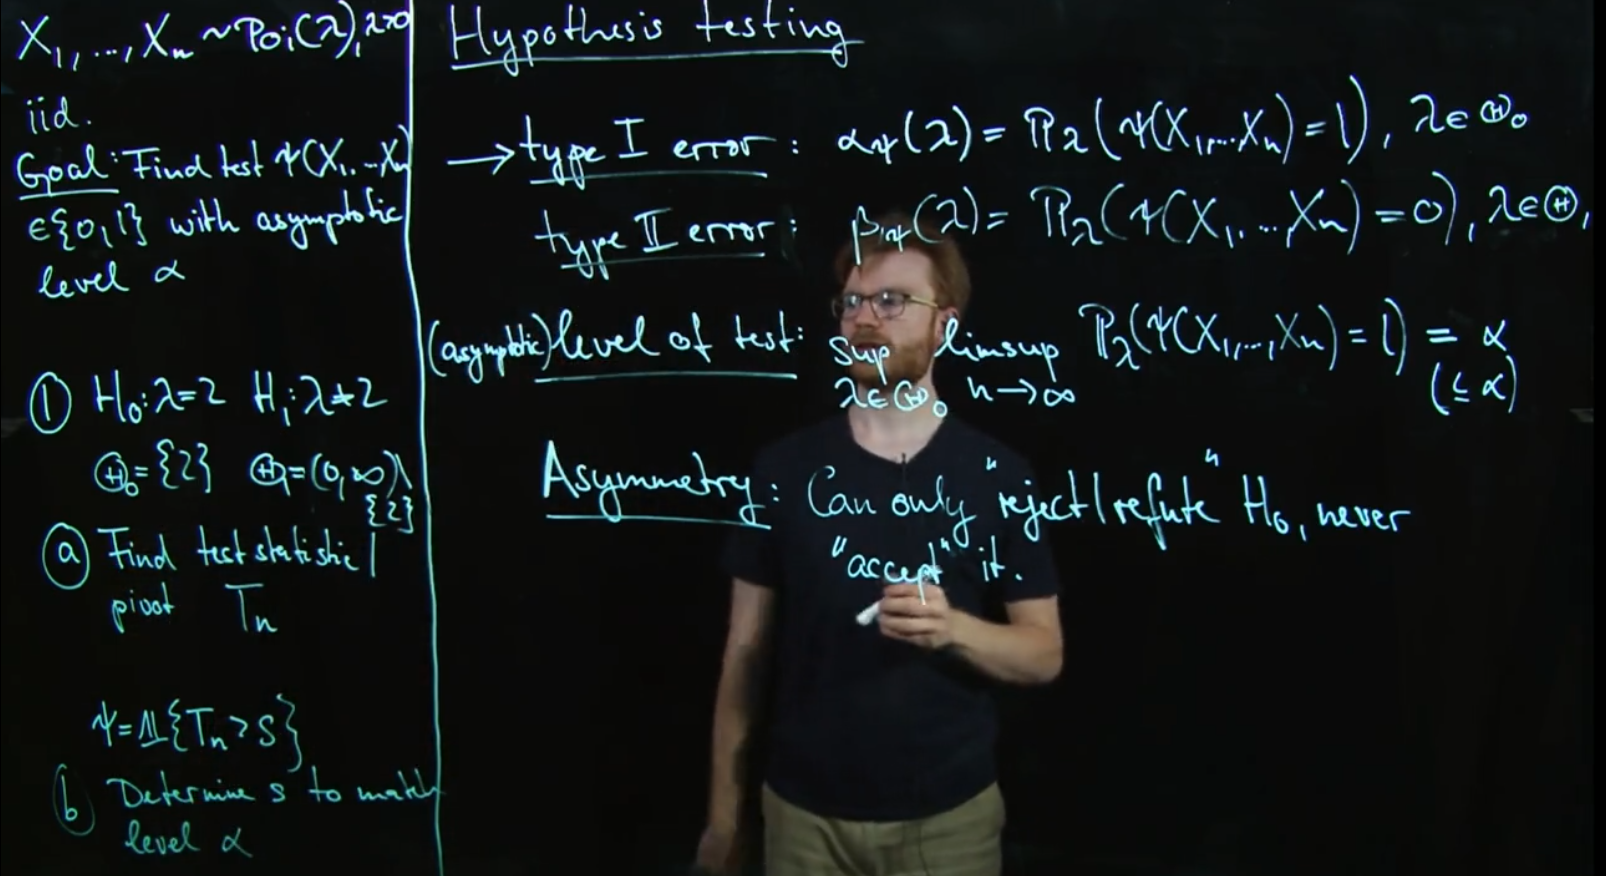 X₁, ..., Xₙ ~ Poi(λ), λ>0
iid.
Goal: Find test ψ(X₁...Xₙ)
∈{0,1} with asymptotic
level α
① H₀: λ=2 H₁: λ≠2
Θ₀={2} Θ₁=(0,∞)\
{2}
ⓐ Find test statistic /
pivot Tₙ
ψ=𝟙{Tₙ>s}
ⓑ Determine s to match
level α
Hypothesis testing
→ type I error: α_ψ(λ) = ℙ_λ(ψ(X₁,...,Xₙ)=1), λ∈Θ₀
type II error: β_ψ(λ) = ℙ_λ(ψ(X₁,...,Xₙ)=0), λ∈Θ₁
(asymptotic) level of test: sup limsup ℙ_λ(ψ(X₁,...,Xₙ)=1) = α
λ∈Θ₀ n→∞ (≤ α)
Asymmetry: Can only "reject/refute" H₀, never
"accept" it.